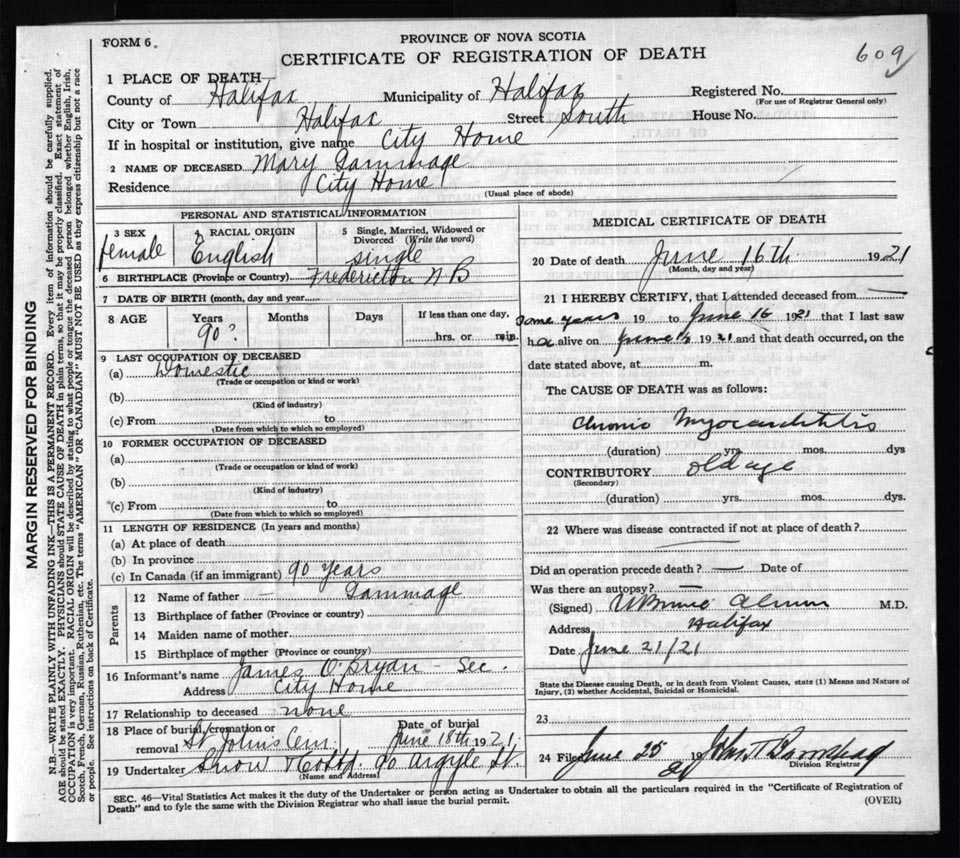 FORM 6.
PROVINCE OF NOVA SCOTIA
CERTIFICATE OF REGISTRATION OF DEATH
609
1 PLACE OF DEATH
County of Halifax Municipality of Halifax Registered No.
(For use of Registrar General only)
City or Town Halifax Street South House No.
If in hospital or institution, give name City Home
2 NAME OF DECEASED Mary Gammage
Residence City Home
(Usual place of abode)
PERSONAL AND STATISTICAL INFORMATION
3 SEX 4 RACIAL ORIGIN 5 Single, Married, Widowed or
Divorced (Write the word)
female English single
6 BIRTHPLACE (Province or Country) Fredericton N B
7 DATE OF BIRTH (month, day and year)
8 AGE Years Months Days If less than one day,
90? hrs. or min.
9 LAST OCCUPATION OF DECEASED
(a) Domestic
(Trade or occupation or kind or work)
(b)
(Kind of industry)
(c) From to
(Date from which to which so employed)
10 FORMER OCCUPATION OF DECEASED
(a)
(Trade or occupation or kind of work)
(b)
(Kind of industry)
(c) From to
(Date from which to which so employed)
11 LENGTH OF RESIDENCE (In years and months)
(a) At place of death
(b) In province
(c) In Canada (if an immigrant) 90 years
Parents
12 Name of father — Gammage
13 Birthplace of father (Province or country)
14 Maiden name of mother
15 Birthplace of mother (Province or country)
16 Informant's name James O'Bryan - Sec.
Address City Home
17 Relationship to deceased none
18 Place of burial, cremation or removal St John's Cem. Date of burial June 18th 1921
19 Undertaker Snow & Co Ltd 90 Argyle St.
(Name and Address)
MEDICAL CERTIFICATE OF DEATH
20 Date of death June 16th 1921
(Month, day and year)
21 I HEREBY CERTIFY, that I attended deceased from
some years 19 to June 16 1921 that I last saw
h alive on June 1921 and that death occurred, on the
date stated above, at m.
The CAUSE OF DEATH was as follows:
Chronic Myocarditis
(duration) yrs. mos. dys
CONTRIBUTORY old age
(Secondary)
(duration) yrs. mos. dys.
22 Where was disease contracted if not at place of death?
Did an operation precede death? — Date of
Was there an autopsy? —
(Signed) M.D.
Address Halifax
Date June 21/21
State the Disease causing Death, or in death from Violent Causes, state (1) Means and Nature of
Injury, (2) whether Accidental, Suicidal or Homicidal.
23
24 Filed June 25 1921 John T
Division Registrar
SEC. 46—Vital Statistics Act makes it the duty of the Undertaker or person acting as Undertaker to obtain all the particulars required in the "Certificate of Registration of
Death" and to fyle the same with the Division Registrar who shall issue the burial permit.
(OVER)
MARGIN RESERVED FOR BINDING
N.B.—WRITE PLAINLY WITH UNFADING INK—THIS IS A PERMANENT RECORD. Every item of information should be carefully supplied.
AGE should be stated EXACTLY. PHYSICIANS should STATE CAUSE OF DEATH in plain terms, so that it may be properly classified. Exact statement of
OCCUPATION is very important. RACIAL ORIGIN will be described by stating to what people or tongue the deceased person belonged whether English, Irish,
Scotch, French, German, Russian, Ruthenian, etc. The terms "AMERICAN" OR "CANADIAN" MUST NOT BE USED as they express citizenship but not a race
or people. See instructions on back of Certificate.